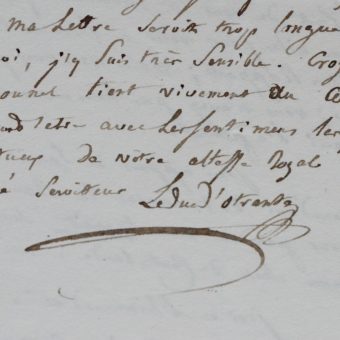 ma Lettre seroit trop longue
oi, j'y suis très sensible. Croy
tient vivement au
etre avec Les sentimens les
tueux de votre altesse Royal
é Serviteur Le duc D'otrante